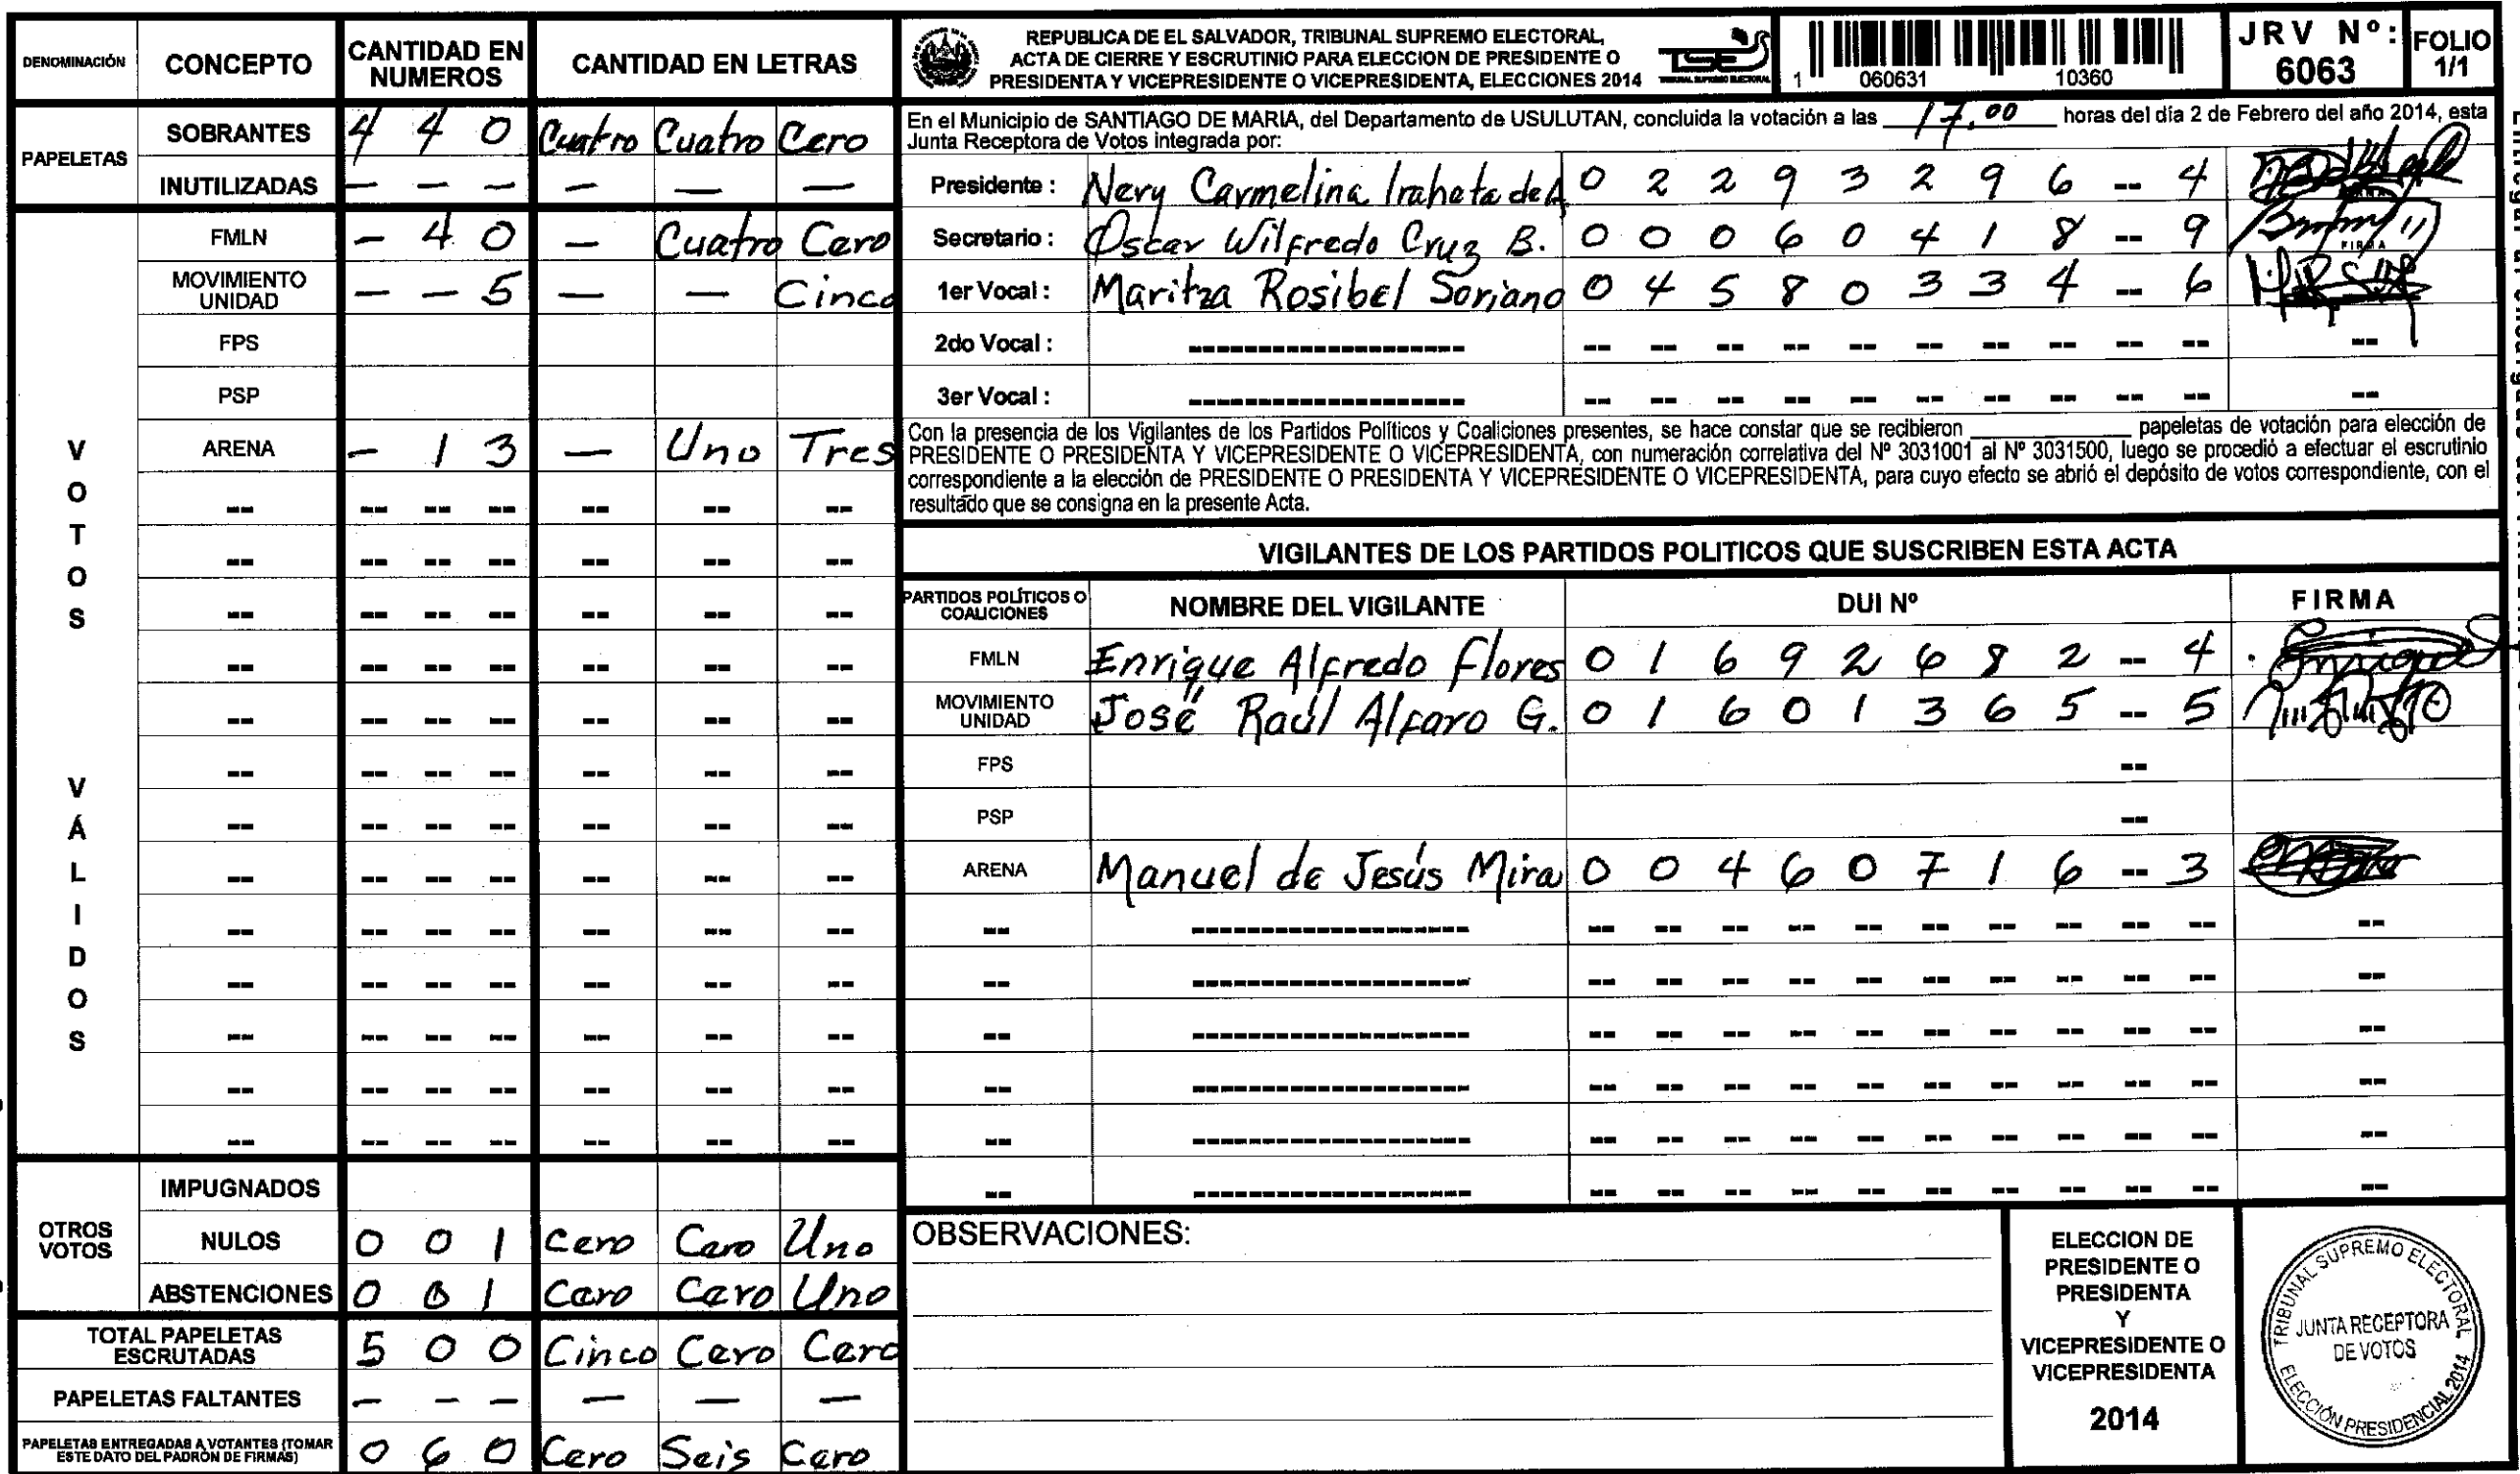 DENOMINACIÓN CONCEPTO CANTIDAD EN NUMEROS CANTIDAD EN LETRAS
PAPELETAS
SOBRANTES 4 4 0 Cuatro Cuatro Cero
INUTILIZADAS — — — — — —
VOTOS VÁLIDOS
FMLN — 4 0 — Cuatro Cero
MOVIMIENTO UNIDAD — — 5 — — Cinco
FPS
PSP
ARENA — 1 3 — Uno Tres
-- -- -- -- -- -- --
-- -- -- -- -- -- --
-- -- -- -- -- -- --
-- -- -- -- -- -- --
-- -- -- -- -- -- --
-- -- -- -- -- -- --
-- -- -- -- -- -- --
-- -- -- -- -- -- --
-- -- -- -- -- -- --
-- -- -- -- -- -- --
-- -- -- -- -- -- --
-- -- -- -- -- -- --
-- -- -- -- -- -- --
OTROS VOTOS
IMPUGNADOS
NULOS 0 0 1 Cero Cero Uno
ABSTENCIONES 0 0 1 Cero Cero Uno
TOTAL PAPELETAS ESCRUTADAS 5 0 0 Cinco Cero Cero
PAPELETAS FALTANTES — — — — — —
PAPELETAS ENTREGADAS A VOTANTES (TOMAR ESTE DATO DEL PADRÓN DE FIRMAS) 0 6 0 Cero Seis Cero
REPUBLICA DE EL SALVADOR, TRIBUNAL SUPREMO ELECTORAL,
ACTA DE CIERRE Y ESCRUTINIO PARA ELECCION DE PRESIDENTE O
PRESIDENTA Y VICEPRESIDENTE O VICEPRESIDENTA, ELECCIONES 2014
TSE
TRIBUNAL SUPREMO ELECTORAL
1 060631 10360
JRV Nº: 6063
FOLIO 1/1
En el Municipio de SANTIAGO DE MARIA, del Departamento de USULUTAN, concluida la votación a las 17.00 horas del día 2 de Febrero del año 2014, esta
Junta Receptora de Votos integrada por:
Presidente : Nery Carmelina Iraheta de A 0 2 2 9 3 2 9 6 -- 4
Secretario : Oscar Wilfredo Cruz B. 0 0 0 6 0 4 1 8 -- 9
FIRMA
1er Vocal : Maritza Rosibel Soriano 0 4 5 8 0 3 3 4 -- 6
2do Vocal : ------------------- -- -- -- -- -- -- -- -- -- -- --
3er Vocal : ------------------- -- -- -- -- -- -- -- -- -- -- --
Con la presencia de los Vigilantes de los Partidos Políticos y Coaliciones presentes, se hace constar que se recibieron ________ papeletas de votación para elección de
PRESIDENTE O PRESIDENTA Y VICEPRESIDENTE O VICEPRESIDENTA, con numeración correlativa del Nº 3031001 al Nº 3031500, luego se procedió a efectuar el escrutinio
correspondiente a la elección de PRESIDENTE O PRESIDENTA Y VICEPRESIDENTE O VICEPRESIDENTA, para cuyo efecto se abrió el depósito de votos correspondiente, con el
resultado que se consigna en la presente Acta.
VIGILANTES DE LOS PARTIDOS POLITICOS QUE SUSCRIBEN ESTA ACTA
PARTIDOS POLÍTICOS O COALICIONES NOMBRE DEL VIGILANTE DUI Nº FIRMA
FMLN Enrique Alfredo Flores 0 1 6 9 2 6 8 2 -- 4
MOVIMIENTO UNIDAD José Raúl Alfaro G. 0 1 6 0 1 3 6 5 -- 5
FPS --
PSP --
ARENA Manuel de Jesús Mira 0 0 4 6 0 7 1 6 -- 3
-- ------------------- -- -- -- -- -- -- -- -- -- -- --
-- ------------------- -- -- -- -- -- -- -- -- -- -- --
-- ------------------- -- -- -- -- -- -- -- -- -- -- --
-- ------------------- -- -- -- -- -- -- -- -- -- -- --
-- ------------------- -- -- -- -- -- -- -- -- -- -- --
-- ------------------- -- -- -- -- -- -- -- -- -- -- --
OBSERVACIONES:
ELECCION DE
PRESIDENTE O
PRESIDENTA
Y
VICEPRESIDENTE O
VICEPRESIDENTA
2014
TRIBUNAL SUPREMO ELECTORAL
JUNTA RECEPTORA
DE VOTOS
ELECCIÓN PRESIDENCIAL 2014